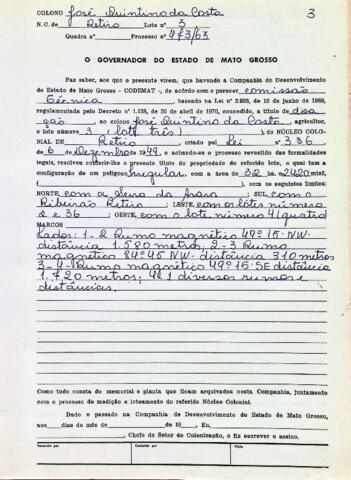 COLONO José Quintino da Costa 3
N. C. de Retiro Lote nº 3
Quadra nº Processo nº 473/67
O GOVERNADOR DO ESTADO DE MATO GROSSO
Faz saber, aos que o presente virem, que havendo a Companhia de Desenvolvimento
do Estado de Mato Grosso - CODEMAT -, de acôrdo com o parecer comissão
Técnica, baseado na Lei nº 2.933, de 10 de junho de 1969,
regulamentada pelo Decreto nº 1.138, de 30 de abril de 1970, concedido, a título de doa
ção, ao colono José Quintino da Costa, agricultor,
o lote número 3 (lote três), do NÚCLEO COLO-
NIAL DE Retiro, criado pel Lei nº 336,
de 6 de Dezembro 1949, e achando-se o processo revestido das formalidades
legais, resolveu conferir-lhe o presente título de propriedade do referido lote, o qual tem a
configuração de um polígono irregular, com a área de 32 ha. e 2420 mts2.
( ), com os seguintes limites:
NORTE com a ; SUL com o
Ribeirão Retiro; LESTE com os lotes números
2 e 36; OESTE com o lote número 4 (quatro)
MARCOS
Lados: 1-2 Rumo magnético 49º15' NW.
distância 1.580 metros. 2-3 Rumo
magnético 84º45 NW. distância 310 metros
3-4 Rumo magnético 49º15' SE distância
1.720 metros; 4-1 diversos rumos e
distâncias.
Como tudo consta do memorial e planta que ficam arquivados nesta Companhia, juntamente
com o processo de medição e loteamento do referido Núcleo Colonial.
Dado e passado na Companhia de Desenvolvimento do Estado de Mato Grosso,
aos dias do mês de de 19 , Eu,
, Chefe do Setor de Colonização, o fiz escrever e assino.
Visto